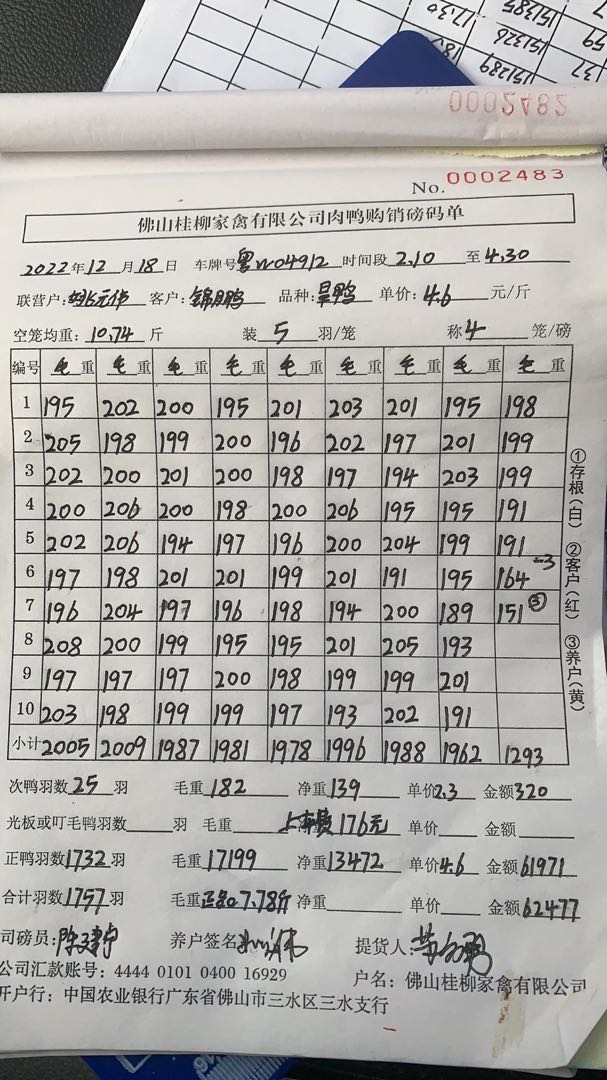 17.30 151385 59
151326 37
18. 151289
0002482
No. 0002483
佛山桂柳家禽有限公司肉鸭购销磅码单
2022年12月18日 车牌号粤W04912 时间段2.10至4.30
联营户: 客户:锦月鹏 品种:旱鸭 单价:4.6元/斤
空笼均重:10.74斤 装5羽/笼 称4笼/磅
编号 毛重 毛重 毛重 毛重 毛重 毛重 毛重 毛重 毛重
1 195 202 200 195 201 203 201 195 198
2 205 198 199 200 196 202 197 201 199
3 202 200 201 200 198 197 194 203 199
4 200 206 200 198 200 206 195 195 191
5 202 206 194 197 196 200 204 199 191
6 197 198 201 201 199 201 191 195 164 -3
7 196 204 197 196 198 194 200 189 151 ③
8 208 200 199 195 195 201 205 193
9 197 197 197 200 198 199 199 201
10 203 198 199 199 197 193 202 191
小计 2005 2009 1987 1981 1978 1996 1988 1962 1293
次鸭羽数25羽 毛重182 净重139 单价2.3 金额320
光板或叮毛鸭羽数羽 毛重 上车费176元 单价 金额
正鸭羽数1732羽 毛重17199 净重13472 单价4.6 金额61971
合计羽数1757羽 毛重正品7.78斤 净重 单价 金额62477
司磅员: 养户签名 提货人:
公司汇款账号:4444 0101 0400 16929 户名:佛山桂柳家禽有限公司
开户行:中国农业银行广东省佛山市三水区三水支行
①存根(白) ②客户(红) ③养户(黄)